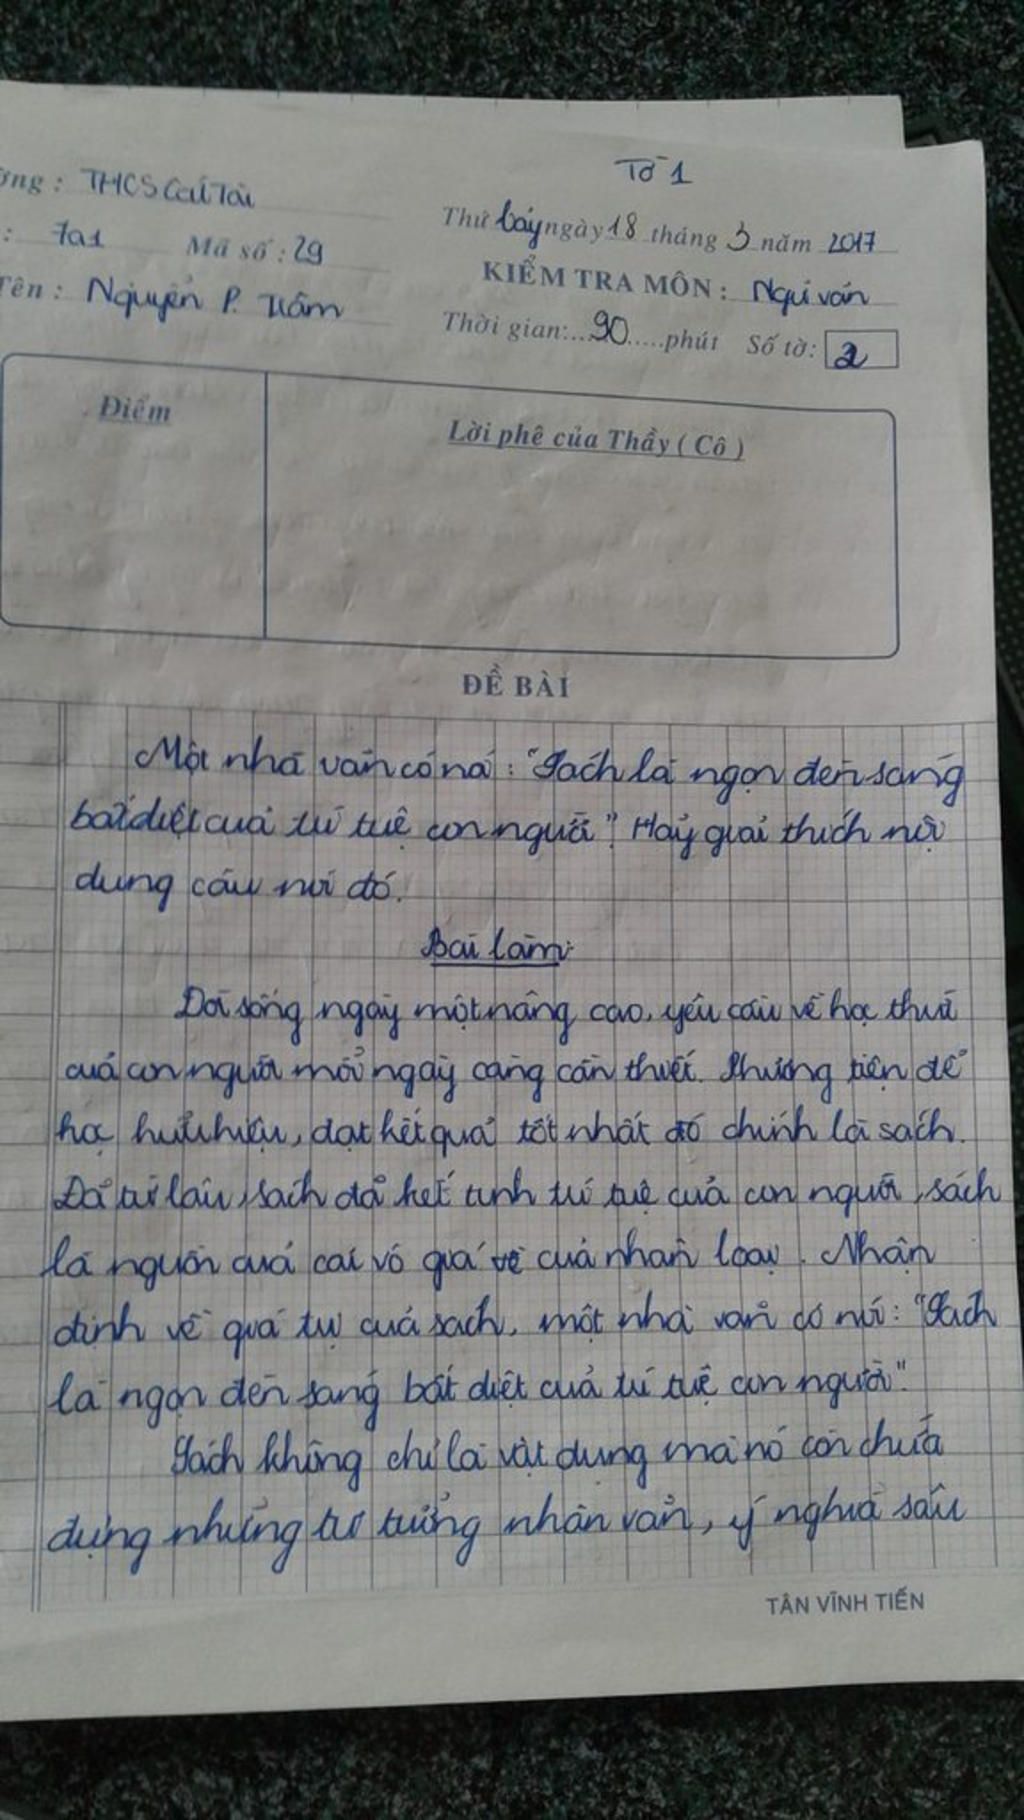 Tờ 1
ờng : THCS Cát Tài
Thứ bảy ngày 18 tháng 3 năm 2017
: 7a1 Mã số : 29
KIỂM TRA MÔN : Ngữ văn
Tên : Nguyễn P. Trâm
Thời gian:...90.....phút Số tờ: 2
Điểm
Lời phê của Thầy ( Cô )
ĐỀ BÀI
Một nhà văn có nói : "Sách là ngọn đèn sáng
bất diệt của trí tuệ con người". Hãy giải thích nội
dung câu nói đó.
Bài làm:
Đời sống ngày một nâng cao, yêu cầu về học thức
của con người mỗi ngày càng cần thiết. Phương tiện để
học hữu hiệu, đạt kết quả tốt nhất đó chính là sách.
Đã từ lâu, sách đã kết tinh trí tuệ của con người, sách
là nguồn của cải vô giá về của nhân loại. Nhận
định về giá trị của sách, một nhà văn có nói: "Sách
là ngọn đèn sáng bất diệt của trí tuệ con người".
Sách không chỉ là vật dụng mà nó còn chứa
đựng những tư tưởng nhân văn, ý nghĩa sâu
TÂN VĨNH TIẾN